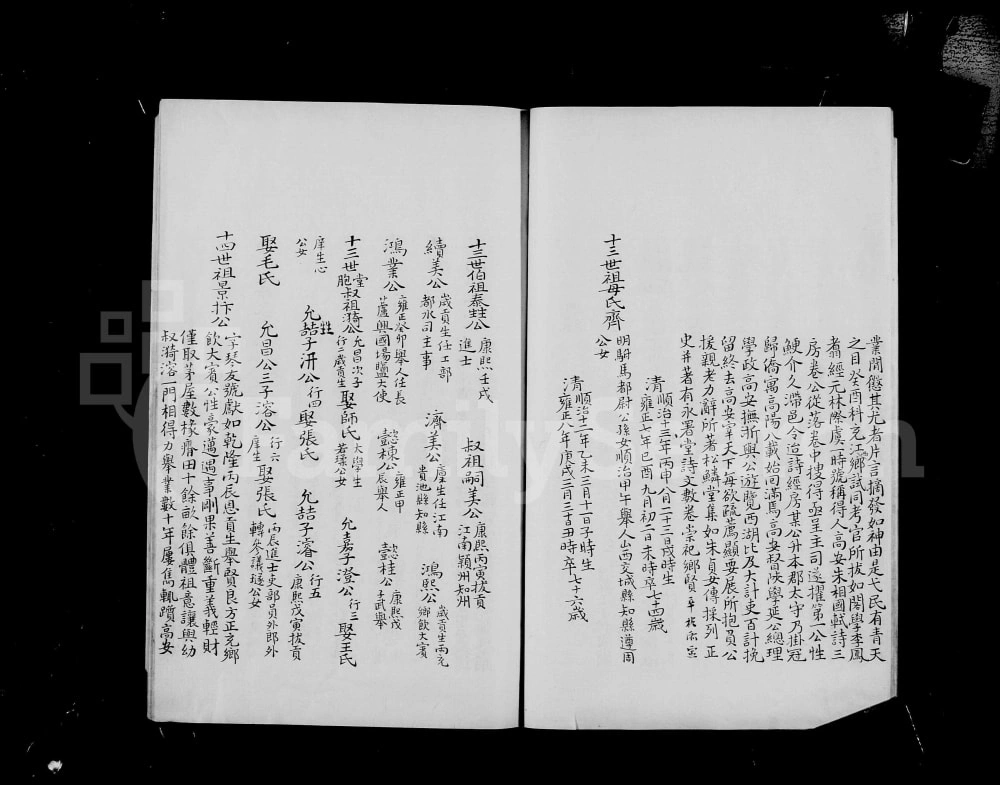 業間懲其尤者片言摘發如神由是弋民有青天
之目癸酉科充江鄉試同考官所拔如閣學李鳳
翥經元林縧虞一時號稱得人高安朱相國軾詩三
房卷公從落卷中搜得亟呈主司遂擢第一公性
鯁介久滯邑令迨詩經房某公升本郡太守乃掛冠
歸僑寓高陽八載始回滿馬高安督陝學延公總理
學政高安撫浙與公遊覽西湖比及大計吏百計挽
留終去高安宰天下每欲疏薦顯要展所抱員公
援親老力辭所著松鱗堂集如朱貞女傳採列正
史并著有永署堂詩文數卷崇祀鄉賢
清順治十三年丙申八月二十三日戌時生
雍正七年己酉九月初二日未時卒七十四歲
十三世祖母氏齊 明駙馬都尉公孫女順治甲午舉人山西交城縣知縣遵周
公女
清順治十二年乙未三月十一日子時生
雍正八年庚戌三月三十日丑時卒七十六歲
十三世伯祖泰䇠公 康熙壬戌
進士
叔祖嗣美公 康熙丙寅拔貢
江南潁州知州
續美公 歲貢生任工部
都水司主事
濟美公 廩生任江南
貴池縣知縣
鴻熙公 歲貢生兩充
鄉飲大賓
鴻業公 雍正癸卯舉人任長
蘆興國場鹽大使
懿棟公 雍正甲
辰舉人
懿桂公 康熙戊
子武舉
十三世堂胞叔祖漪公 允昌次子
行二歲貢生
娶師氏 大學生
若璨公女
允嘉子澄公 行三 娶王氏
庠生心
公女
允喆子汧公 行四 娶張氏
允喆子濬公 行五
康熙戊寅拔貢
娶毛氏
允昌公三子溶公 行六
庠生
娶張氏 丙辰進士吏部員外郎外
轉參議璲公女
十四世祖景抃公 字琴友號獻如乾隆丙辰恩貢生舉賢良方正充鄉
飲大賓公性豪邁遇事剛果善斷重義輕財
僅取茅屋數椽瘠田十餘畝餘俱體祖意讓與幼
叔漪溶一門相得力舉業數十年屢雋輒躓高安